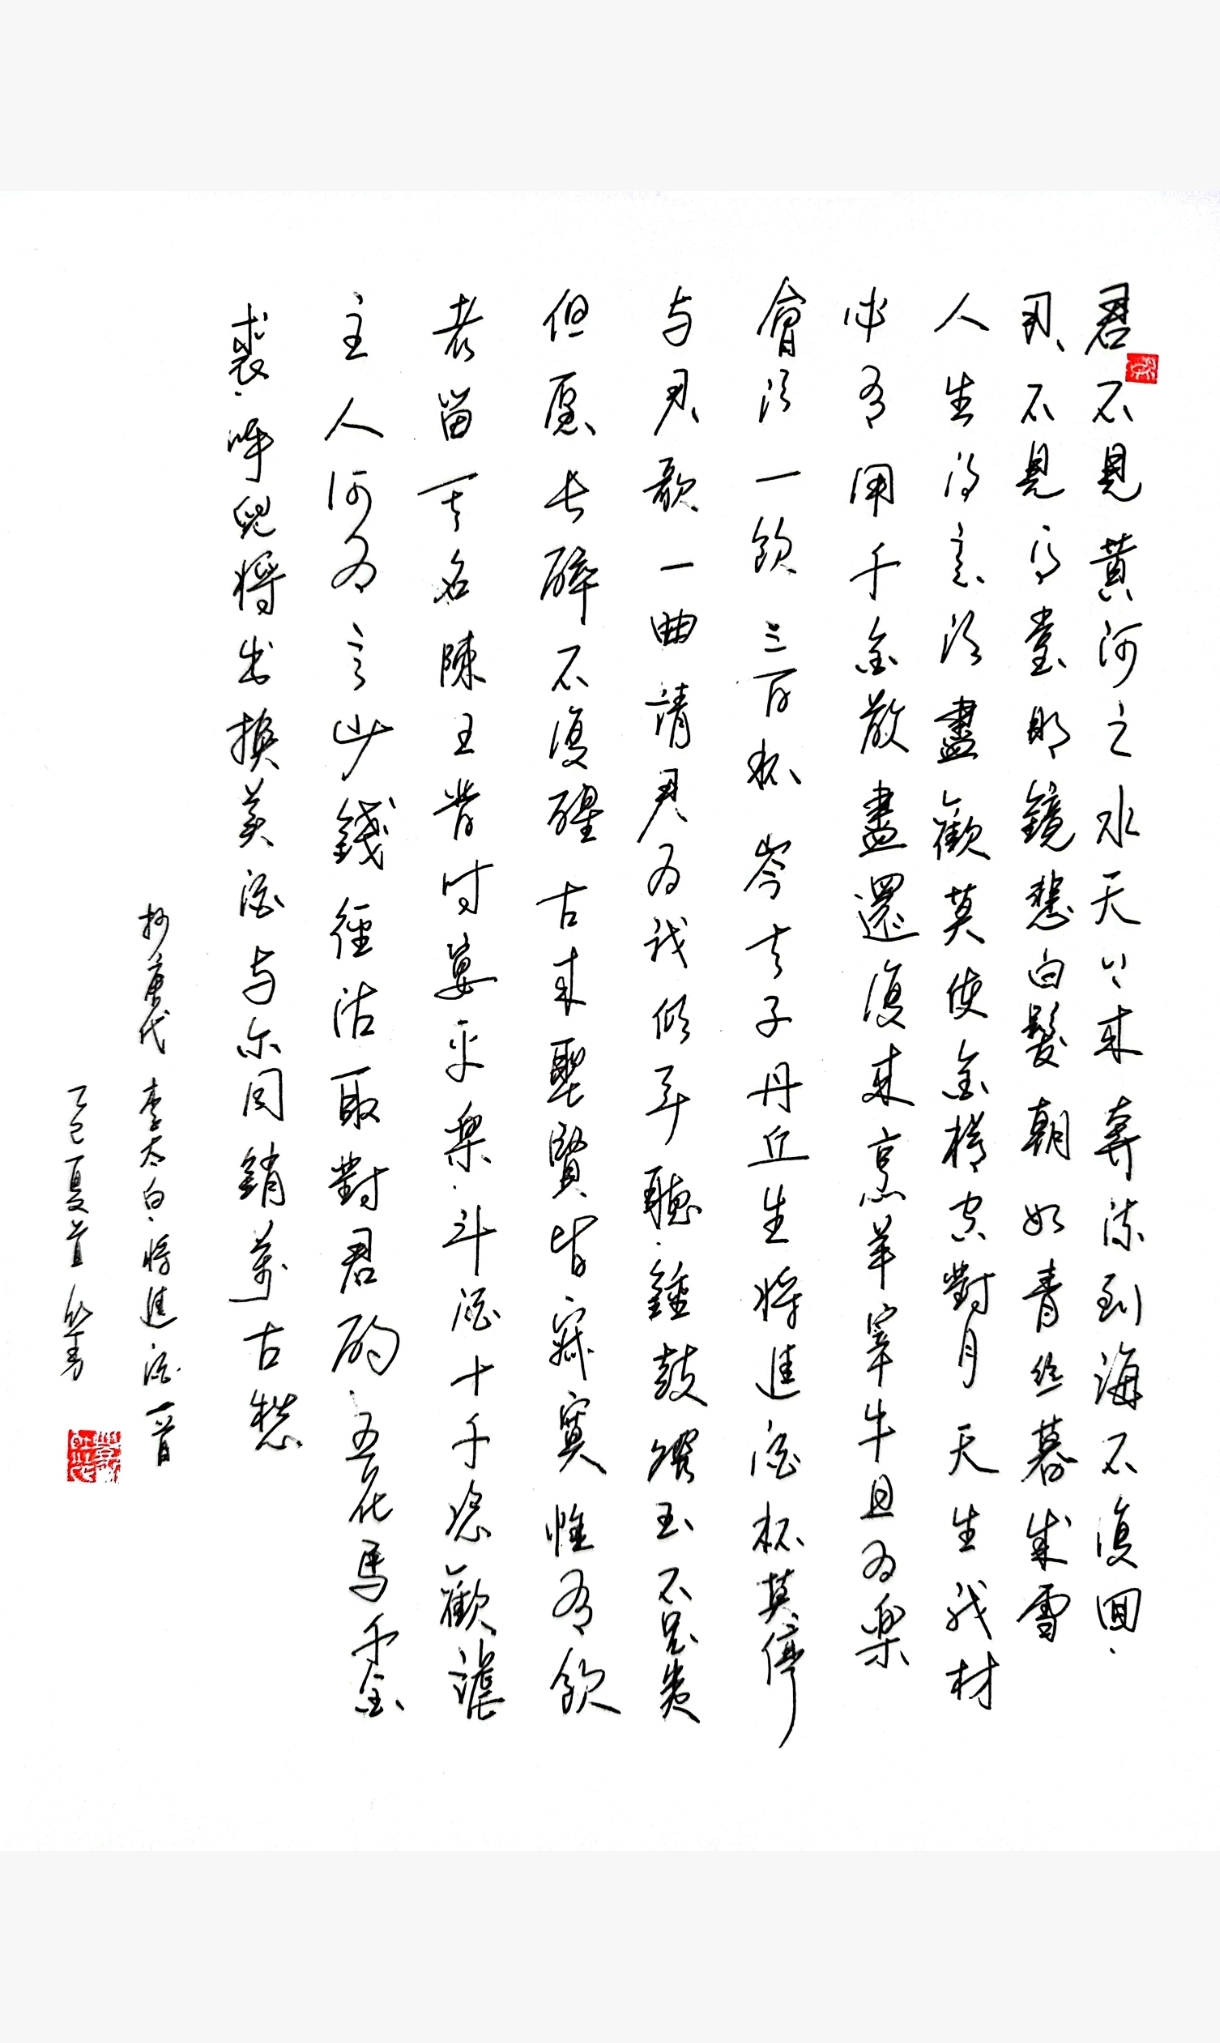 君不見黃河之水天上来奔流到海不復回
君不見高堂明鏡悲白髮朝如青丝暮成雪
人生得意須盡歡莫使金樽空對月天生我材
必有用千金散盡還復来烹羊宰牛且为樂
會須一飲三百杯岑夫子丹丘生将進酒杯莫停
与君歌一曲請君为我倾耳聽鐘鼓饌玉不足贵
但愿长醉不復醒古来聖賢皆寂寞惟有飲
者留其名陳王昔时宴平樂斗酒十千恣歡謔
主人何为言少錢徑沽取對君酌五花馬千金
裘呼兒將出換美酒与尔同銷萬古愁
抄唐代李太白将進酒一首
乙巳夏首